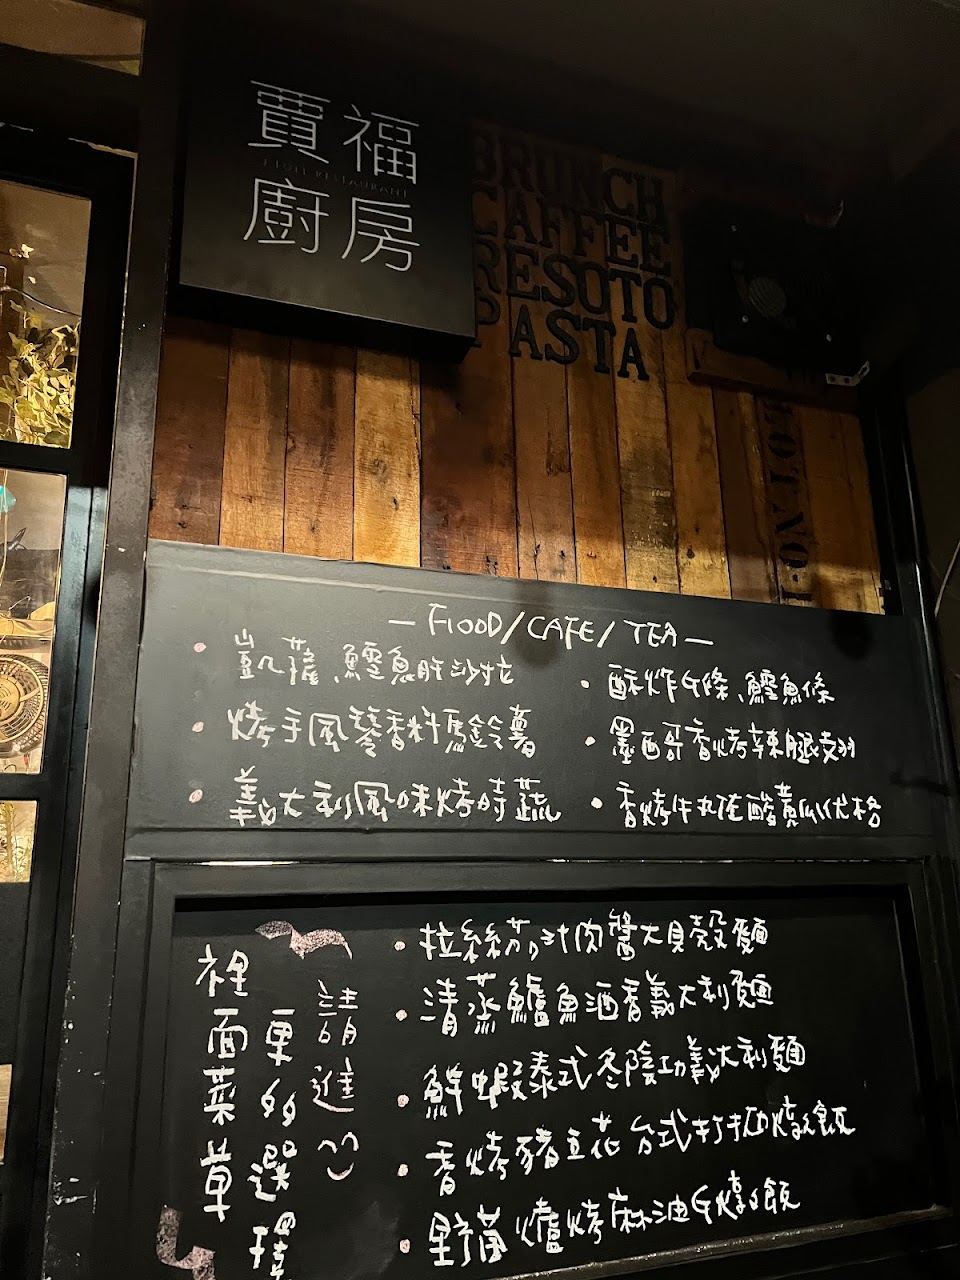 賈福
J FULL RESTAURANT
廚房
BRUNCH
CAFFEE
RESOTO
PASTA
HOT NO.1
— FOOD/CAFE/TEA —
• 凱薩、鱈魚肝沙拉
• 烤手風琴香料馬鈴薯
• 義大利風味烤時蔬
• 酥炸G條、鱈魚條
• 墨西哥香烤辣腿支翅
• 香烤牛丸佐酸黃瓜优格
請進
更多選擇
裡面菜單
• 拉絲茄汁肉醬大貝殼麵
• 清蒸鱸魚酒香義大利麵
• 鮮蝦泰式冬陰功義大利麵
• 香烤豬五花台式打拋燉飯
• 野菇爐烤麻油G燉飯